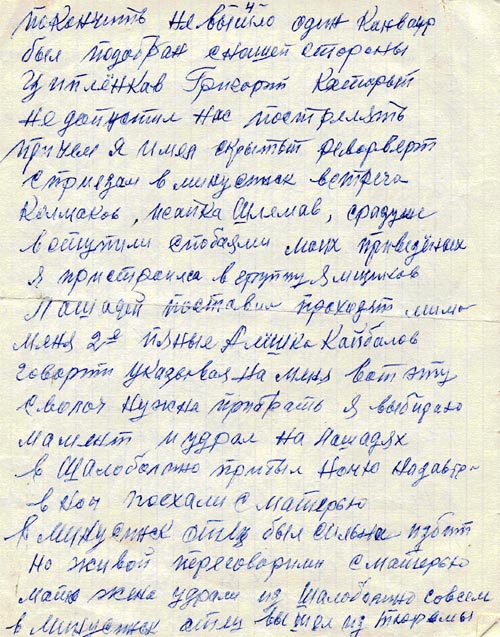 покончить не вышло один Канваир
был подобран с нашей стороны
Цыплёнкав Григорий который
не допустил нас пострелять
причем я имел скрытый револьверт
с приездам в минусинск встреча
Колмаков, исайка Шлемав, сразуже
моих приведёных
я пристроился в группу ямщиков
Лашадей поставил проходят мимо
меня 2е пяные Алёшка Кайбалов
говорит указывая на меня вот эту
сволоч нужна прибрать я выбираю
мамент и удрал на лашадях
в Шалоболино прибыл ночю на завтра
в ноч поехали с матерью
в минусинск отец был сильна избит
но живой переговорили с матерью
удрали из Шалоболино совсем
в минусинск отец вышел из тюрьмы